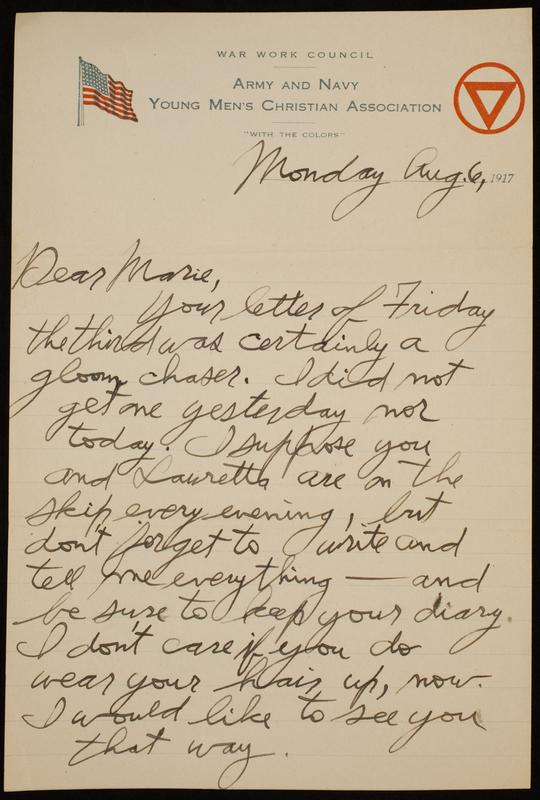 WAR WORK COUNCIL
ARMY AND NAVY
YOUNG MEN'S CHRISTIAN ASSOCIATION
"WITH THE COLORS"
Monday Aug. 6, 1917
Dear Marie,
Your letter of Friday
the third was certainly a
gloom chaser. I did not
get one yesterday nor
today. I suppose you
and Lauretta are on the
skip every evening, but
don't forget to write and
tell me everything — and
be sure to keep your diary.
I don't care if you do
wear your hair up, now.
I would like to see you
that way.